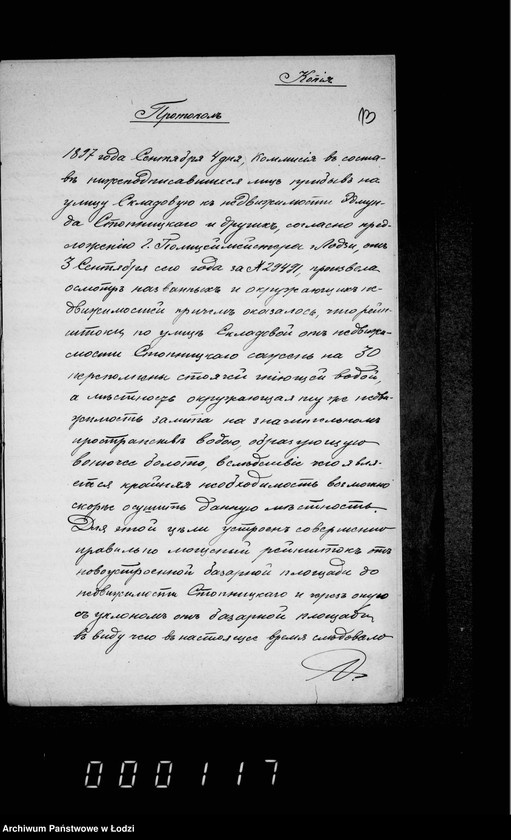 Копія
13
Протоколъ
1897 года Сентября 4 дня, Коммисія въ соста-
вѣ нижеподписавшихся лицъ прибывъ на
улицу Складовую къ недвижимости Эдмун-
да Стопницкаго и другихъ, согласно пред-
ложенію Г. Полиціймейстера г. Лодзи, отъ
3 Сентября сего года за № 29491, произвела
осмотръ названныхъ и окружающихъ не-
движимостей причемъ оказалось, что рейн-
штоки по улицѣ Складовой отъ недвижи-
мости Стопницкаго саженъ на 30
переполнены стоячей гніющей водой,
а мѣстность окружающая ту же недви-
жимость залита на значительномъ
пространствѣ водою, образующую
вонючее болото, вслѣдствіе чего явля-
ется крайняя необходимость возможно
скорѣе осушить данную мѣстность.
Для этой цѣли устроенъ совершенно
правильно мощеный рейнштокъ отъ
новоустроенной базарной площади до
недвижимости Стопницкаго и черезъ оную
съ уклономъ отъ базарной площади,
въ виду чего въ настоящее время слѣдовало
000117
Archiwum Państwowe w Łodzi